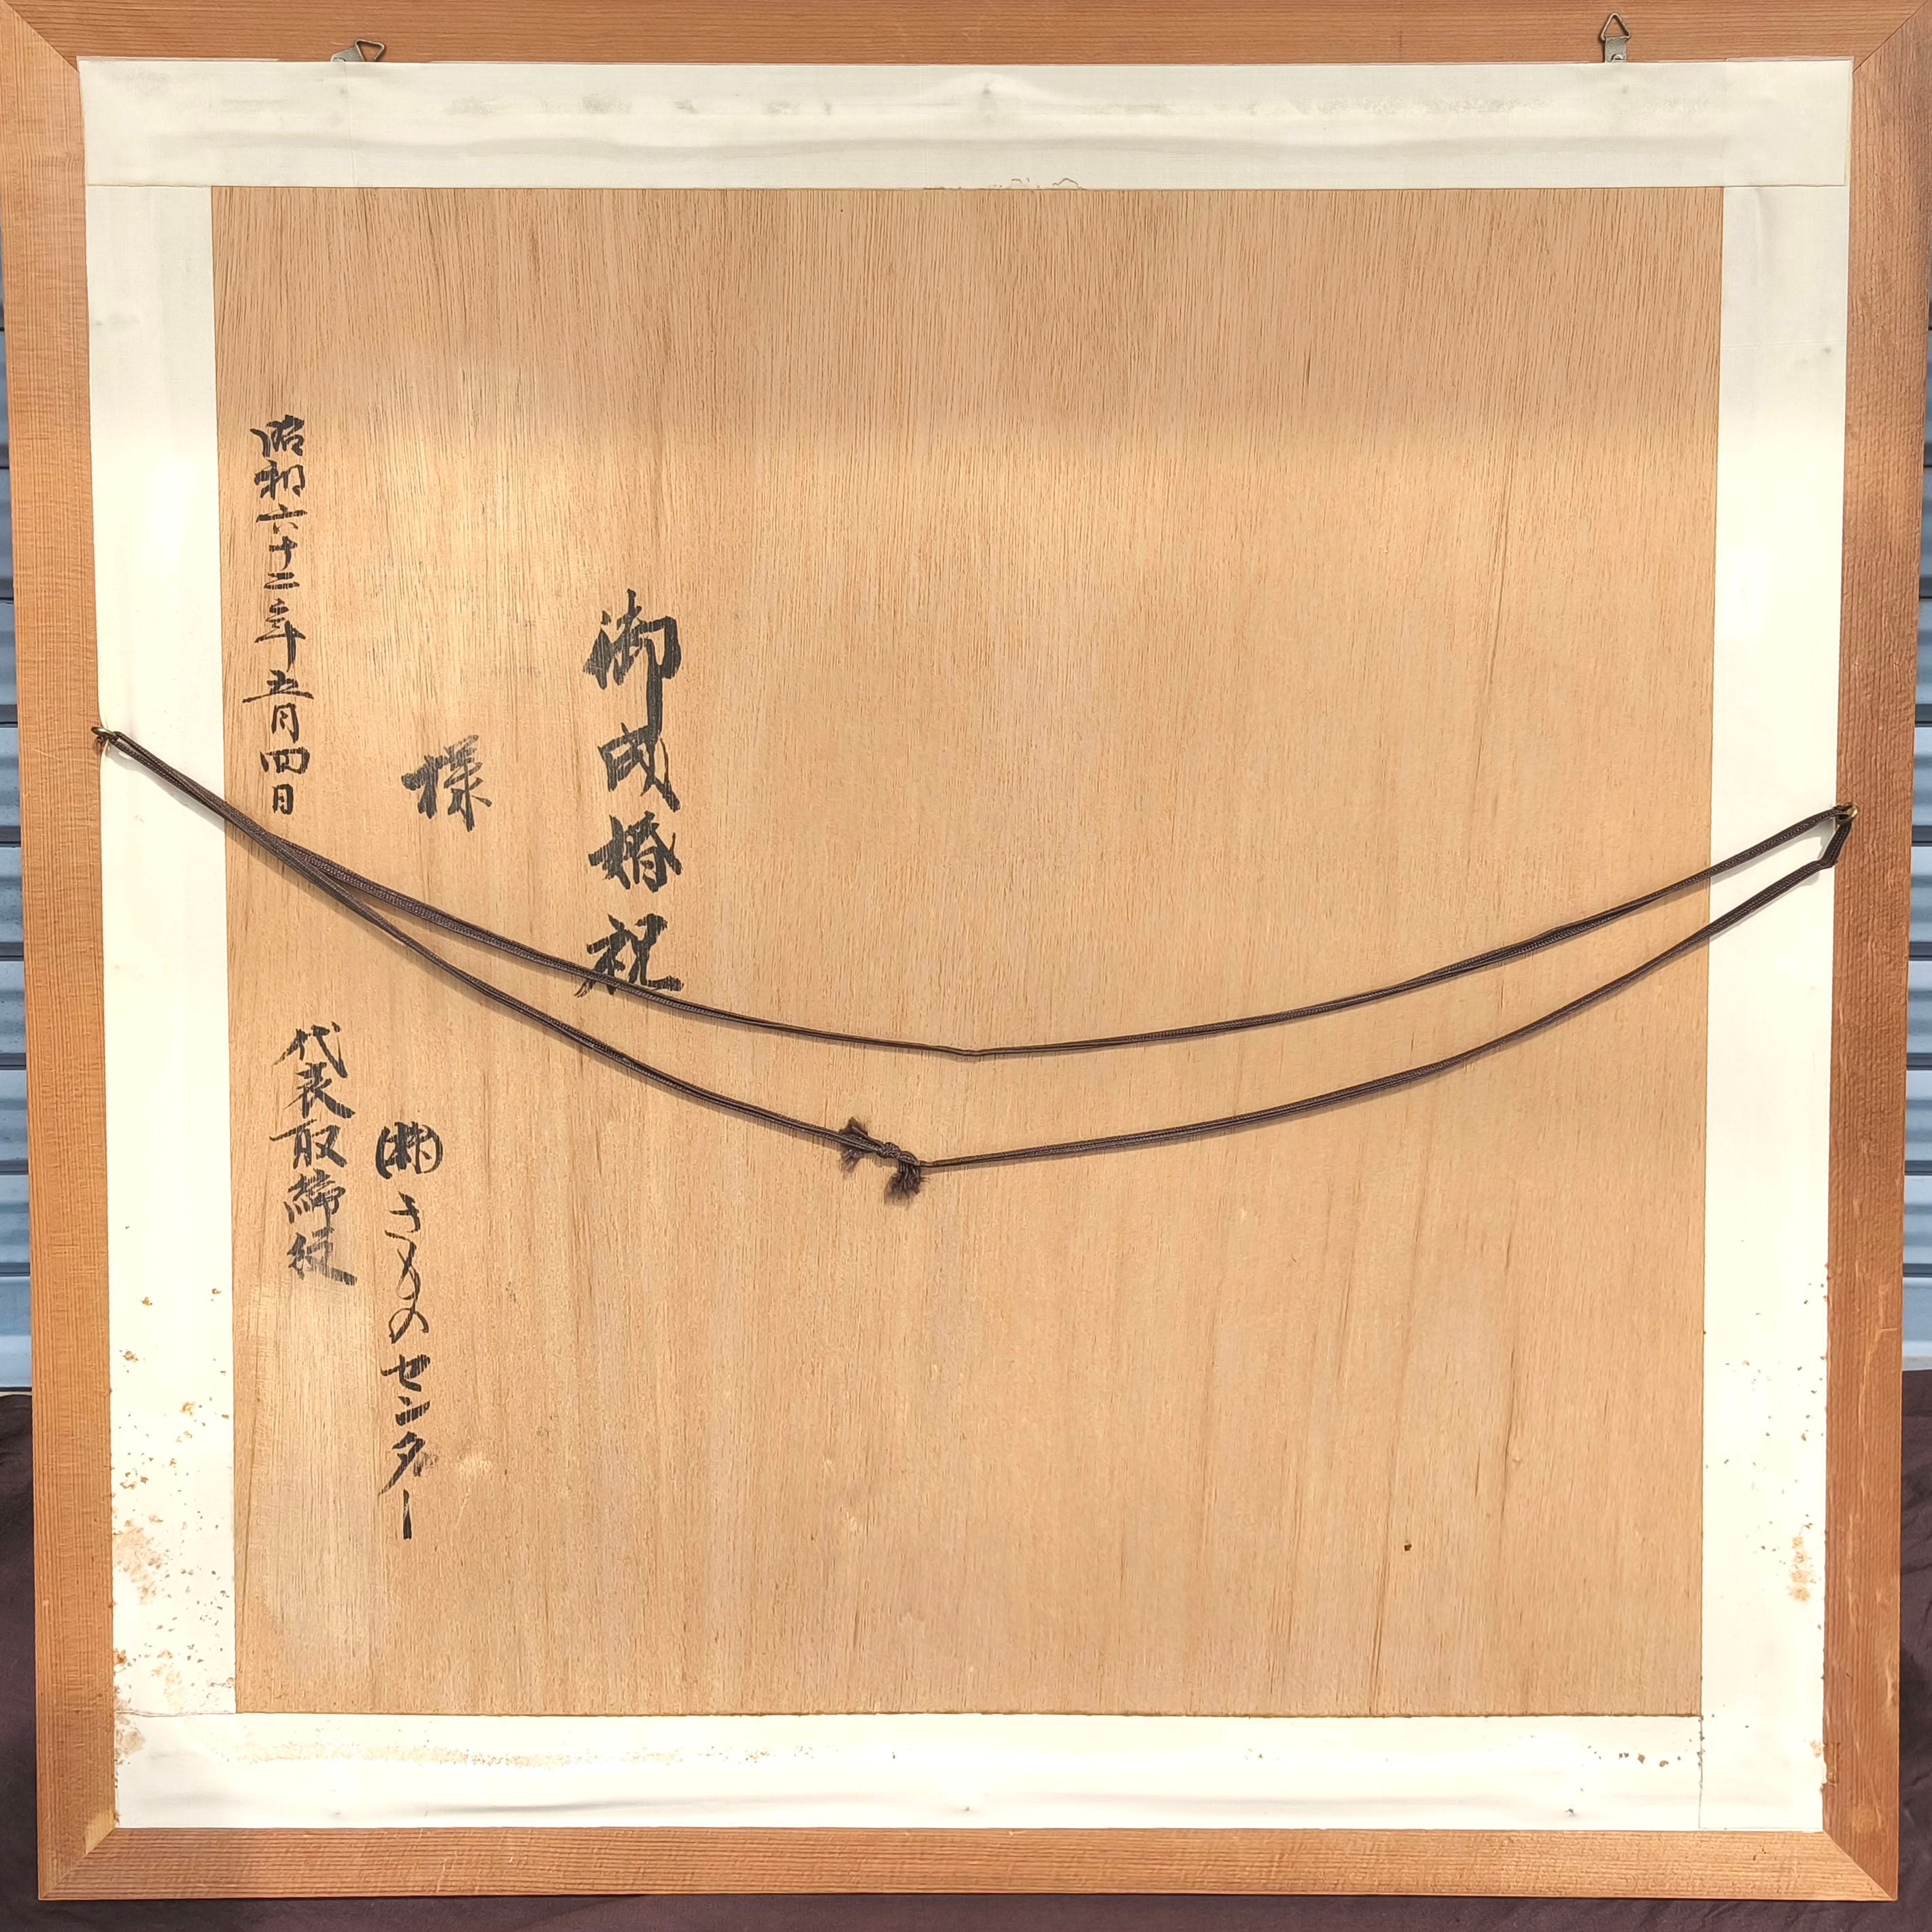 御成婚祝
様
㈱きものセンター
代表取締役
昭和六十二年五月四日